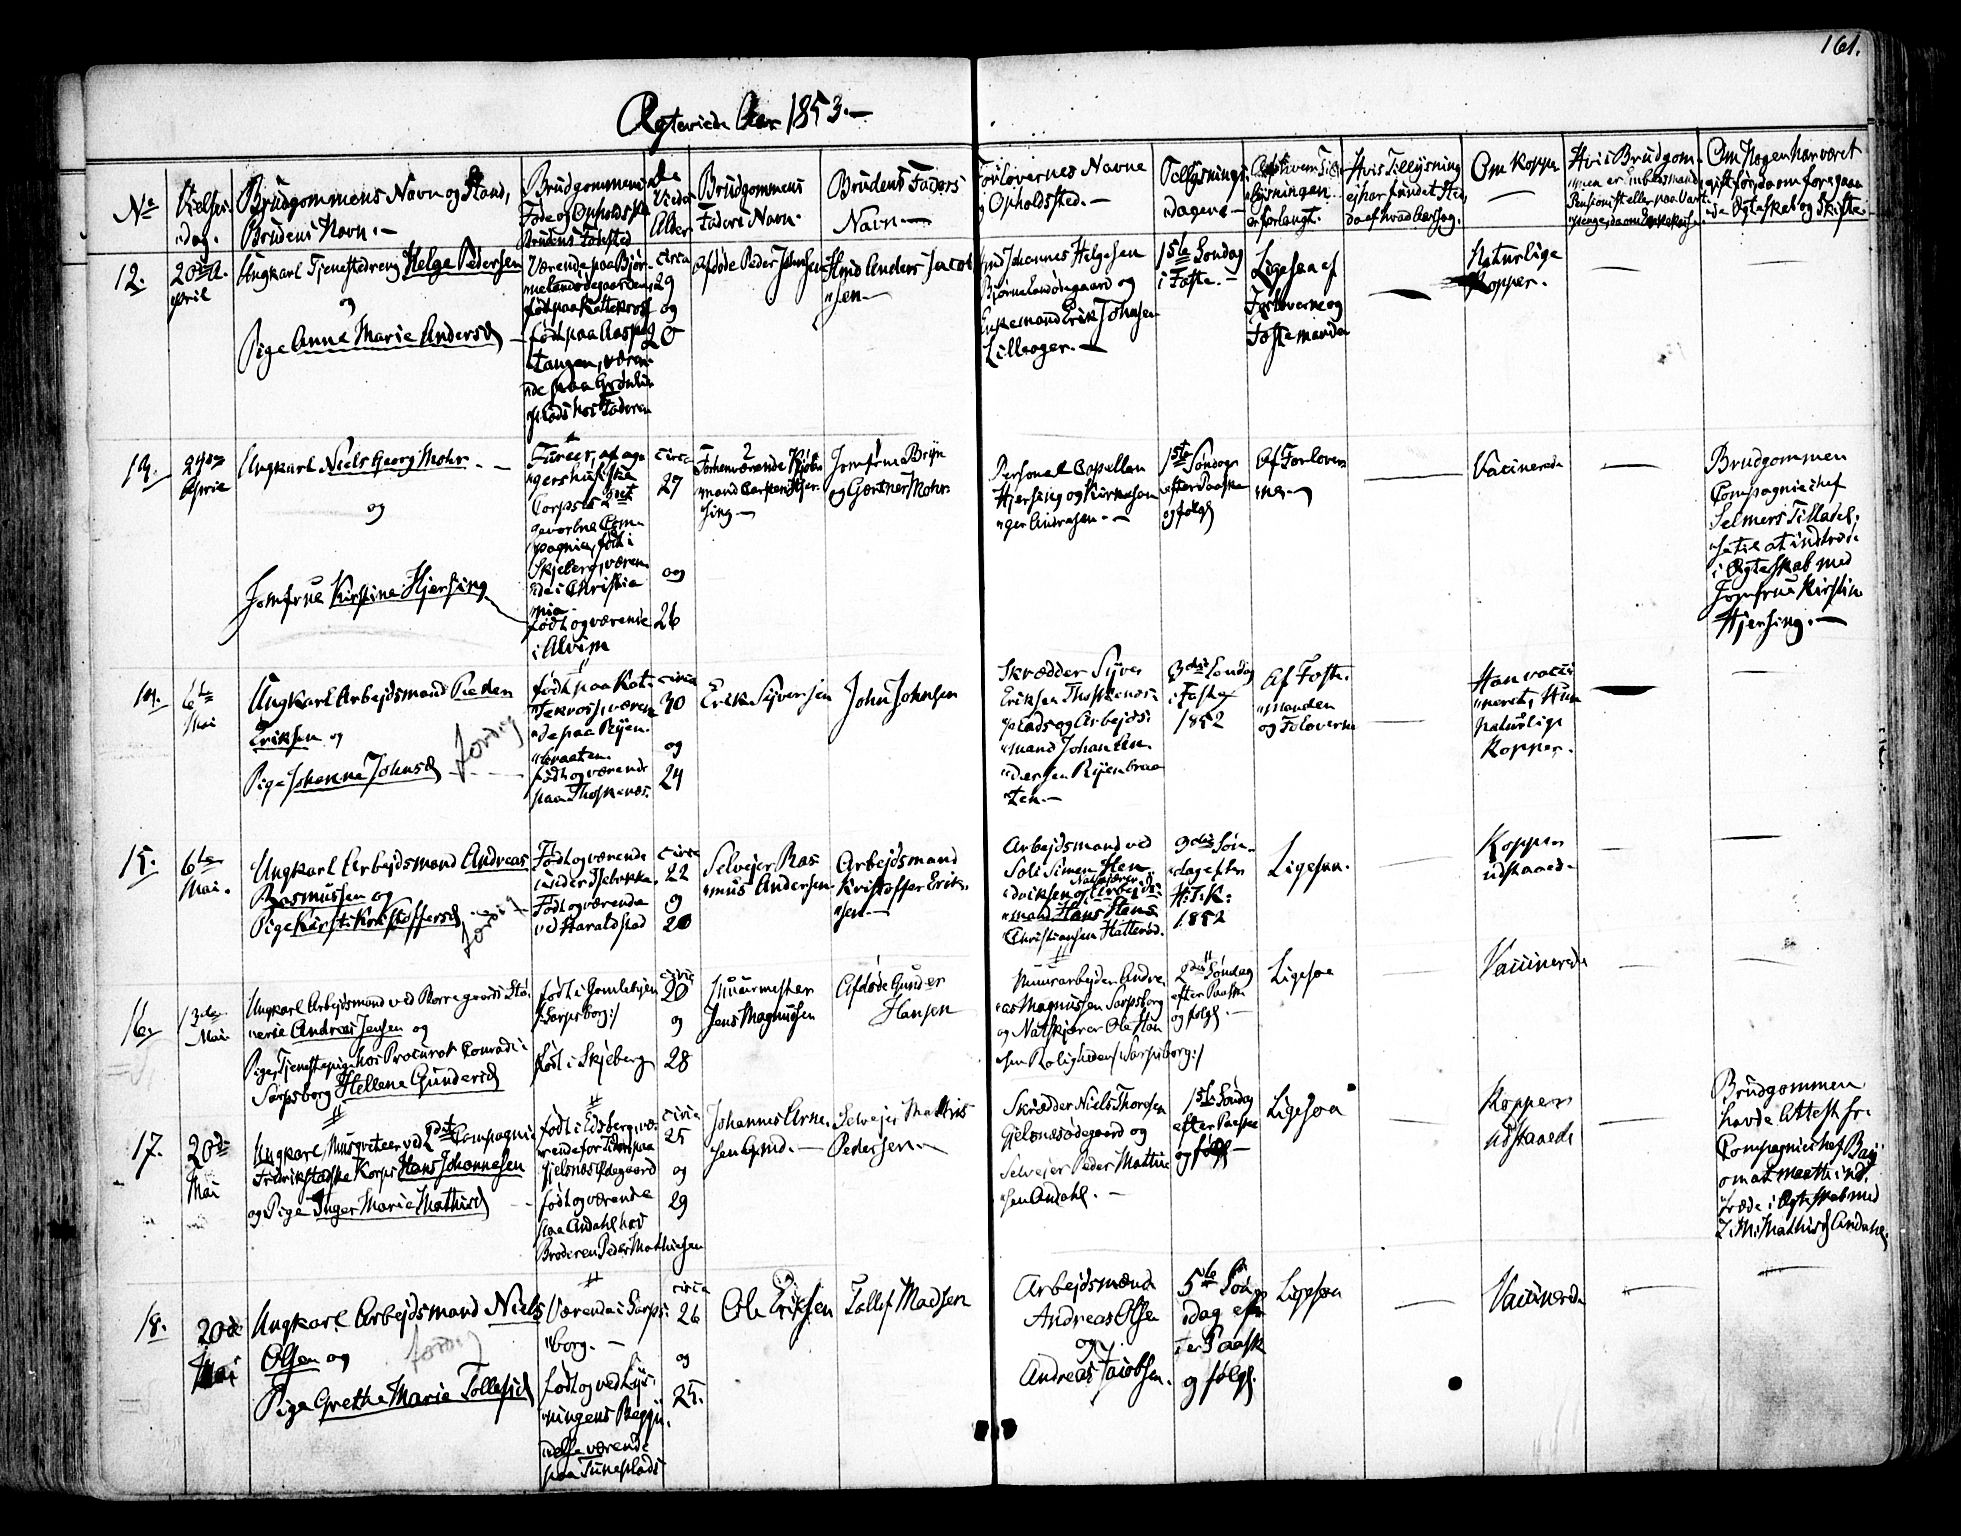 161.
Ægteviede Aar 1853.—
No
Vielses-
dag.
Brudgommens Navn og Stand,
Brudens Navn.—
Brudgommens
Føde og Opholdst.
Brudens Fødested
Alder
Brudgommens
Faders Navn.
Brudens Faders
Navn.—
Forlovernes Navne
og Opholdssted.—
Tillysnings-
dagene—
Af hvem Till
lysningen
er forlangt.
Hvis Tillysning
ej har fundet Sted
da af hvad Aarsag.
Om Kopper
Hvis Brudgom-
men er Embedsmand
Om Nogen har været
gift før, da om foregaa
ende Ægteskab og Skifte
12.
20de A-
pril
Ungkarl Tjenestedreng Helge Pedersen
og
Pige Anne Marie Andersd
Værende paa Bjør-
nelandødegaarden,
født paa Kattekros
født paa Aasp
tangen, væren-
de paa Grønlie
plads hos Faderen
circa
29
og
20
Afdøde Peder Johnsen
Hmd Anders Jacob
sen—
Hmd Johannes Helgesen
Bjørnelandødegaard og
Enkemand Erik Johnsen
Lilleager.—
1ste Søndag
i Faste.—
Ligesaa af
Forloverne og
Fostemanden
Naturlige
Kopper.
24de
April
Ungkarl Niels Georg Mohr
og
Jomfrue Kirstine Hjersing
Fureer, af age
gershusiske
Corpses 2det
gevorbne Com-
pagnie, født i
Skjeberg, væren
de i Christia
nia
født og værende
i Alvim
circa
27
og
26
Forhenværende Kjøb-
mand Carsten Hjer-
sing—
Jomfrue Bryn
og Gartner Mohr
Personel Capellan
Hjersing og Kirkesan
ger Andersen.—
1ste Søndag
efter Paaske
og følgd
Af Forlover
ne.—
Vacinerede
Brudgommen
Compagniechef
Selmers Tilladel-
se til at indtræde
i Ægteskab med
Jomfrue Kirstin
Hjersing.—
14.
6te
Mai
Ungkarl Arbejdsmand Peder
Eriksen og
Pige Johanne Johnsd
født paa Kat-
tekros, væren
de paa Ryen-
braaten.
født og værende
paa Thosknæs.
circa
30
og
24
Erik Syversen
John Johnsen
Skrædder Syver
Eriksen Thosknæs-
plads og Arbejds-
mand Johan An-
dersen Ryenbraa
ten.—
3die Søndag
i Faste
1852
Af Foste-
manden
og Foloverne
Han vacci-
neret, Hun
naturlige
Kopper.
15.
6te
Mai.
Ungkarl Arbejdsmand Andreas
Rasmussen og
Pige Kirsti Kristoffersd
Født og værende
under Isebakke.
Født og værende
ved Haraldstad
circa
22
og
20
Selvejer Ras
mus Andersen
Arbejdsmand
Kristoffer Erik-
sen—
Arbejdsmand ved
Soli Simen Hen
driksen og Arbejds-
mand Hans Hans
Christiansen Hatterød.
3die Søn-
dag efter
H:T:K:
1852
Ligesaa.
Kopper
udstaaede
16.
13de
Mai
Ungkarl Arbejdsmand ved Borregaards Stø-
verie Andreas Jensen og
Pige, Tjenestepige hos Procurat Conradi i
Sarpsborg Hellene Gundersd
født i Gamlebyen
/Sarpsborg:/
født i Skjeberg
circa
20
og
28
Muurmester
Jens Magnussen
Afdøde Gunder
Hansen
Muurarbejder Andre
as Magnussen Sarpsborg
og Natskjærer Ole Han
sen Roligheden /Sarpsborg:/
2den Søndag
efter Paaske
og følgd.—
Ligesaa
Vaccinerede
17.
20de
Mai
Ungkarl, Musqueteer ved 2det Compagnie
Fredrikstadske Korps Hans Johannesen
og Pige Inger Marie Mathisd
født i Edsberg, væ-
rende for Tiden paa
Gjelsnæsødegaard
født og værende
paa Andahl hos
Broderen Peder Mathiesen
circa
25
og
29
Johannes Arne-
sen Gmd.—
Selvejer Mathis
Pedersen.—
Skrædder Niels Thoresen
Gjelsnæsødegaard og
Selvejer Peder Mathie
sen Andahl.—
1ste Søndag
efter Paaske
og følgd—
Ligesaa
Kopper
udstaaede
Brudgommen
havde Attest fra
Compagniechef
om at maatte ind-
træde i Ægteskab med
I: M: Mathisd Andahl.
18.
20de
Mai
Ungkarl Arbejdsmand Niels
Olsen og
Pige Grethe Marie Tollefsd
Værende i Sarps-
borg.—
født og ved Lys-
ningens Begyn-
delse værende
paa Tuneplads
circa
26
og
25.
Ole Eriksen
Tollef Madsen
Arbejdsmænd
Andreas Olsen
og
Andreas Jacobsen.
5te Søn-
dag ef-
ter Paask
og følgd.
Ligesaa
Vaccinerede